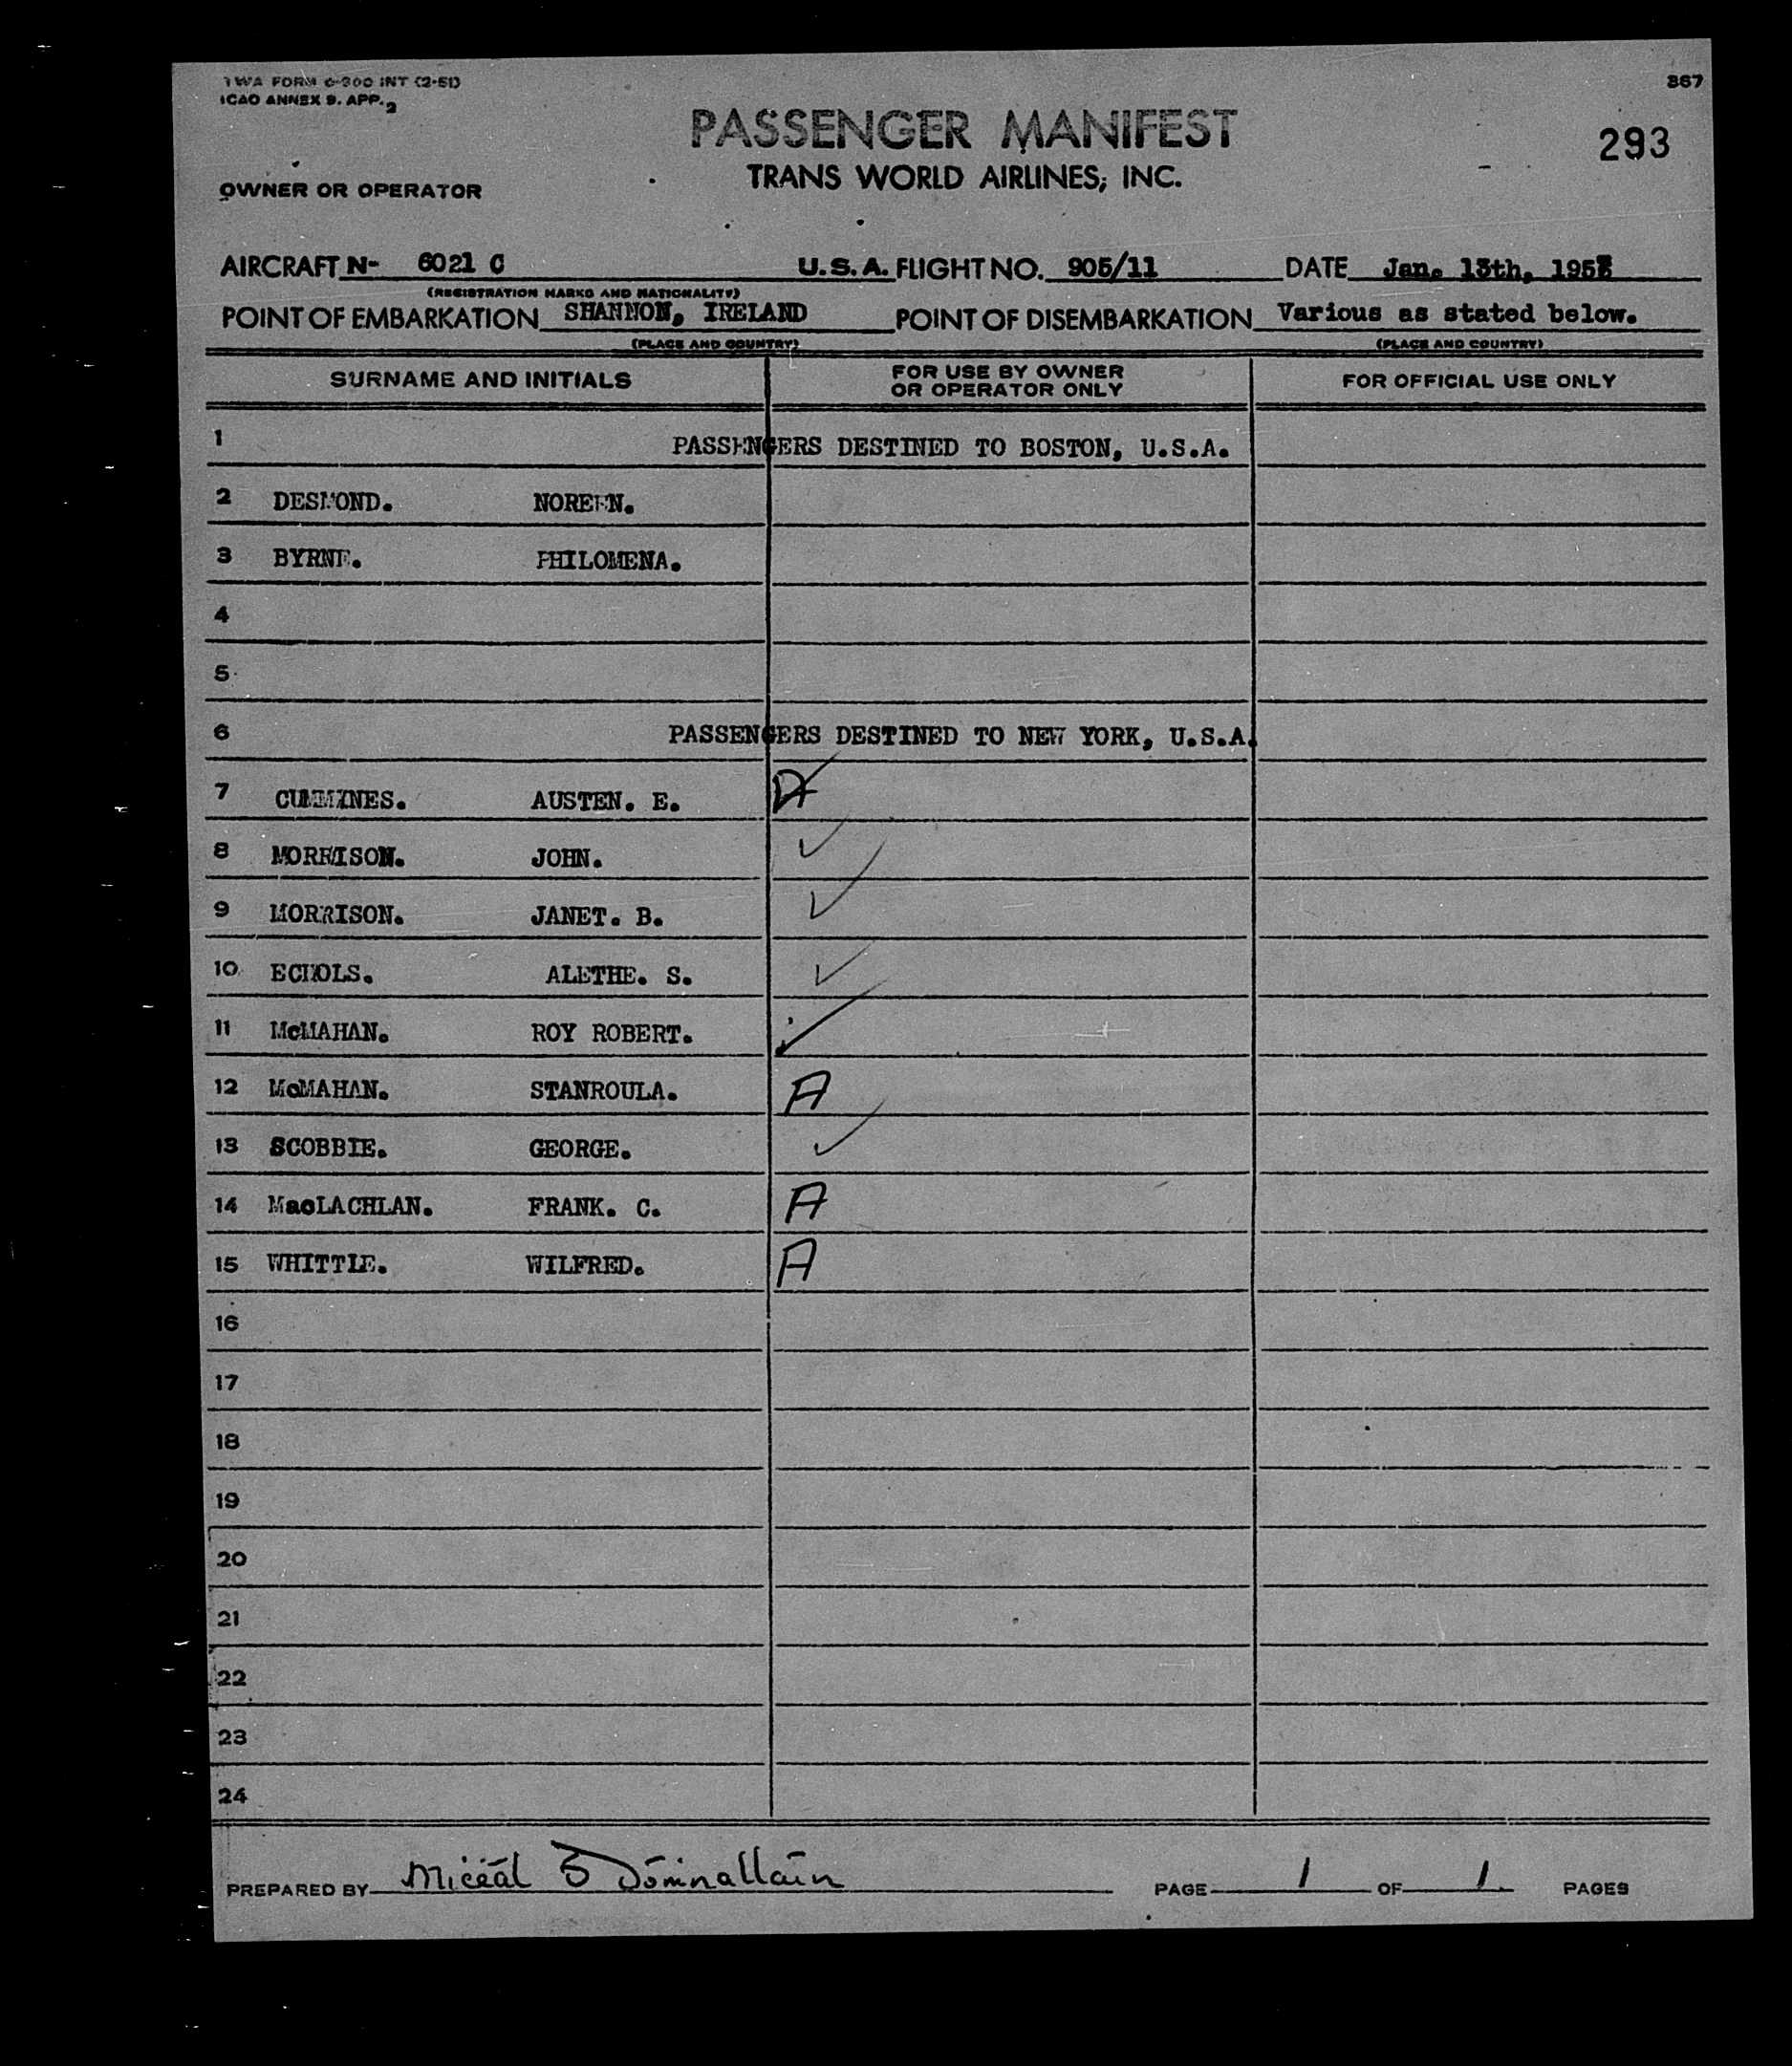 TWA FORM 6-300 INT (2-51)
867
ICAO ANNEX 9. APP. 2
PASSENGER MANIFEST
293
TRANS WORLD AIRLINES, INC.
OWNER OR OPERATOR
AIRCRAFT N- 6021 C U.S.A. FLIGHT NO. 905/11 DATE Jan. 13th,
(REGISTRATION MARKS AND NATIONALITY)
POINT OF EMBARKATION SHANNON, IRELAND POINT OF DISEMBARKATION Various as stated below.
(PLACE AND COUNTRY) (PLACE AND COUNTRY)
SURNAME AND INITIALS FOR USE BY OWNER OR OPERATOR ONLY FOR OFFICIAL USE ONLY
1 PASSENGERS DESTINED TO BOSTON, U.S.A.
2 DESMOND. NOREEN.
3 BYRNE. PHILOMENA.
4
5
6 PASSENGERS DESTINED TO NEW YORK, U.S.A.
7 CUMMINES. AUSTEN. E. A
8 MORRISON. JOHN. ✓
9 MORRISON. JANET. B. ✓
10 ECHOLS. ALETHE. S. ✓
11 McMAHAN. ROY ROBERT. ✓
12 McMAHAN. STANROULA. A
13 SCOBBIE. GEORGE. ✓
14 MacLACHLAN. FRANK. C. A
15 WHITTLE. WILFRED. A
16
17
18
19
20
21
22
23
24
PREPARED BY Miceál Ó Dómnalláin PAGE 1 OF 1. PAGES